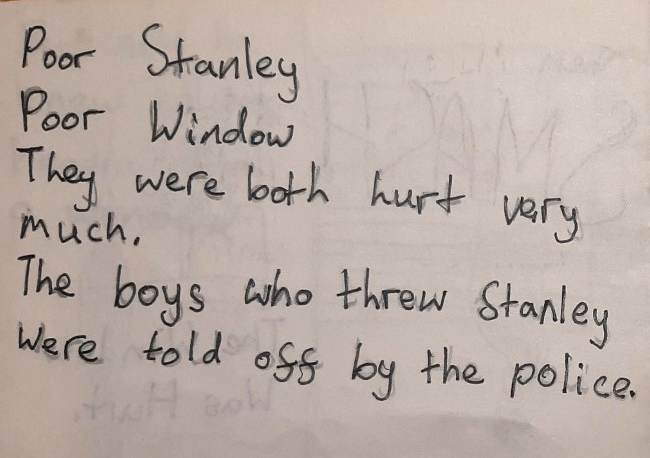 Poor Stanley
Poor Window
They were both hurt very
much.
The boys who threw Stanley
were told off by the police.